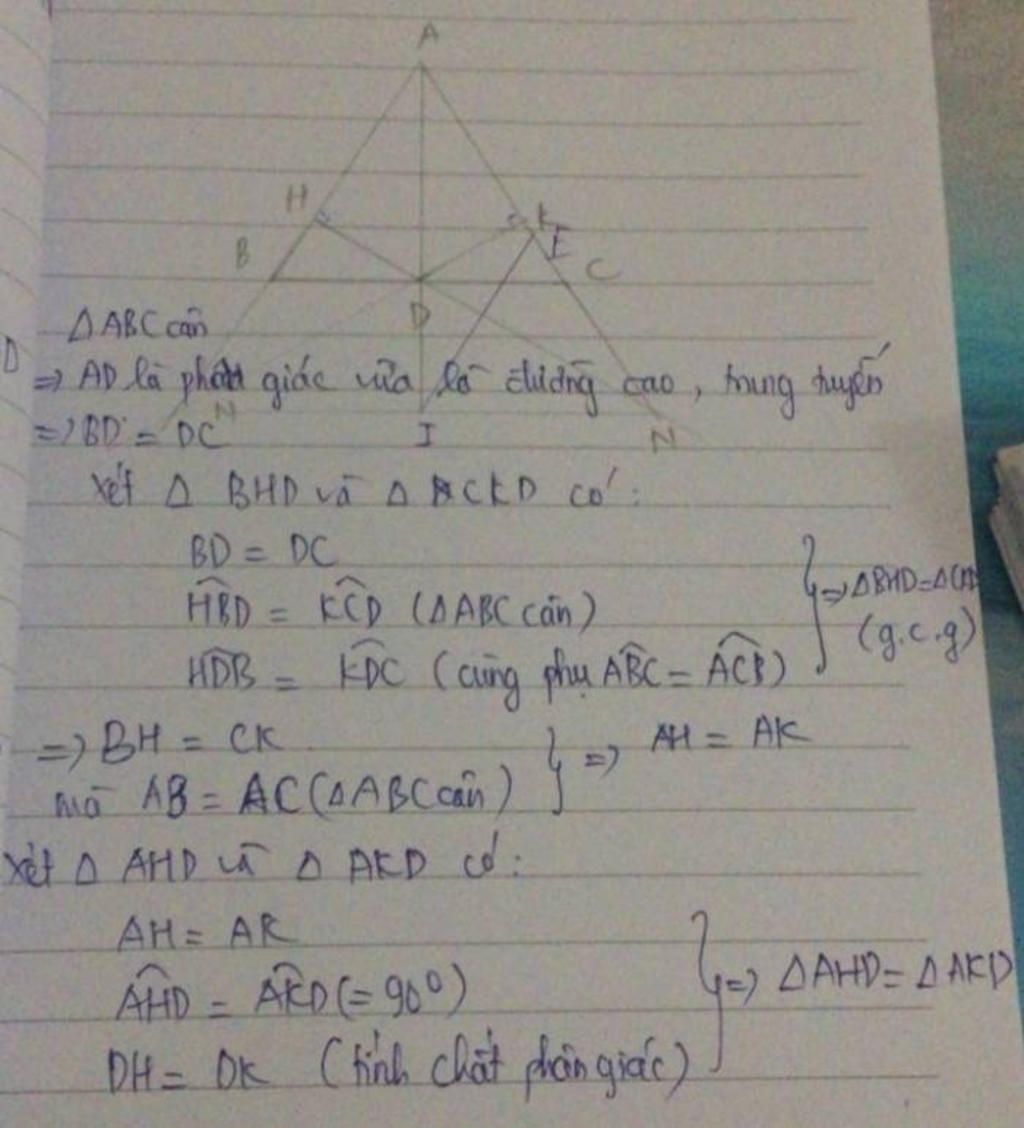 A
H
K
E
B
C
D
ΔABC cân
⇒ AD là phân giác vừa là đường cao, trung tuyến
N
⇒ BD = DC
I
N
Xét Δ BHD và Δ CKD có:
BD = DC
HBD = KCD (ΔABC cân)
⇒ ΔBHD = ΔCKD
HDB = KDC (cùng phụ ABC = ACB)
(g.c.g)
⇒ BH = CK
mà AB = AC (ΔABC cân)
⇒ AH = AK
Xét Δ AHD và Δ AKD có:
AH = AK
AHD = AKD (= 90°)
⇒ ΔAHD = ΔAKD
DH = DK (tính chất phân giác)